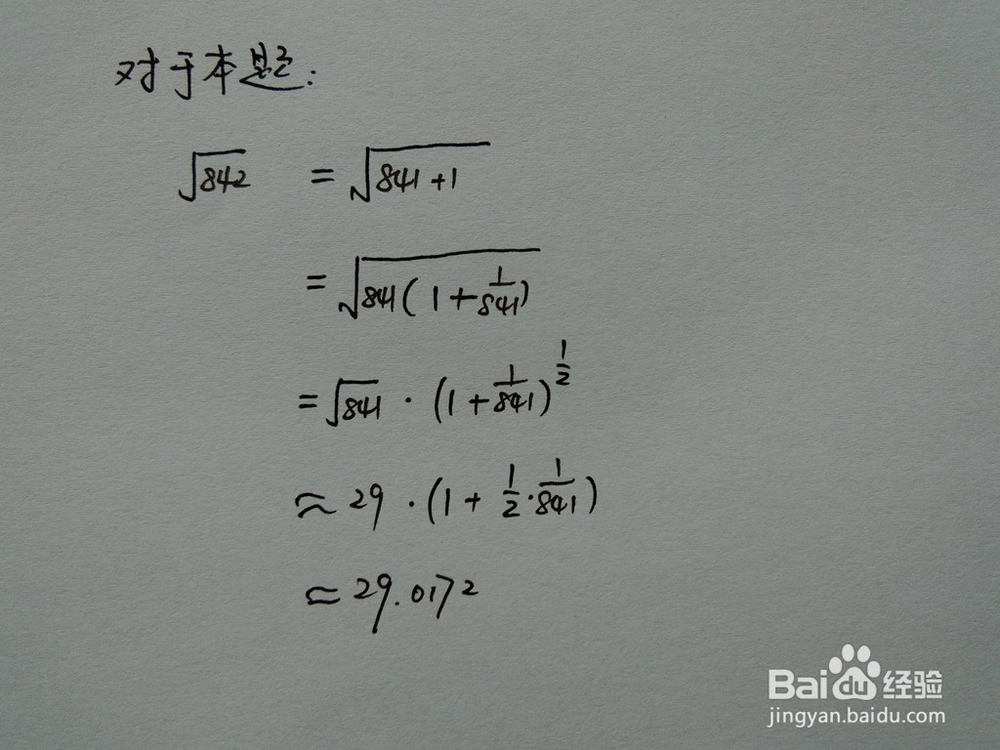 对于本题:
√842 = √(841+1)
= √(841(1+1/841))
= √841 · (1+1/841)^(1/2)
≈ 29 · (1 + 1/2 · 1/841)
≈ 29.0172
Bai du 经验
jingyan.baidu.com